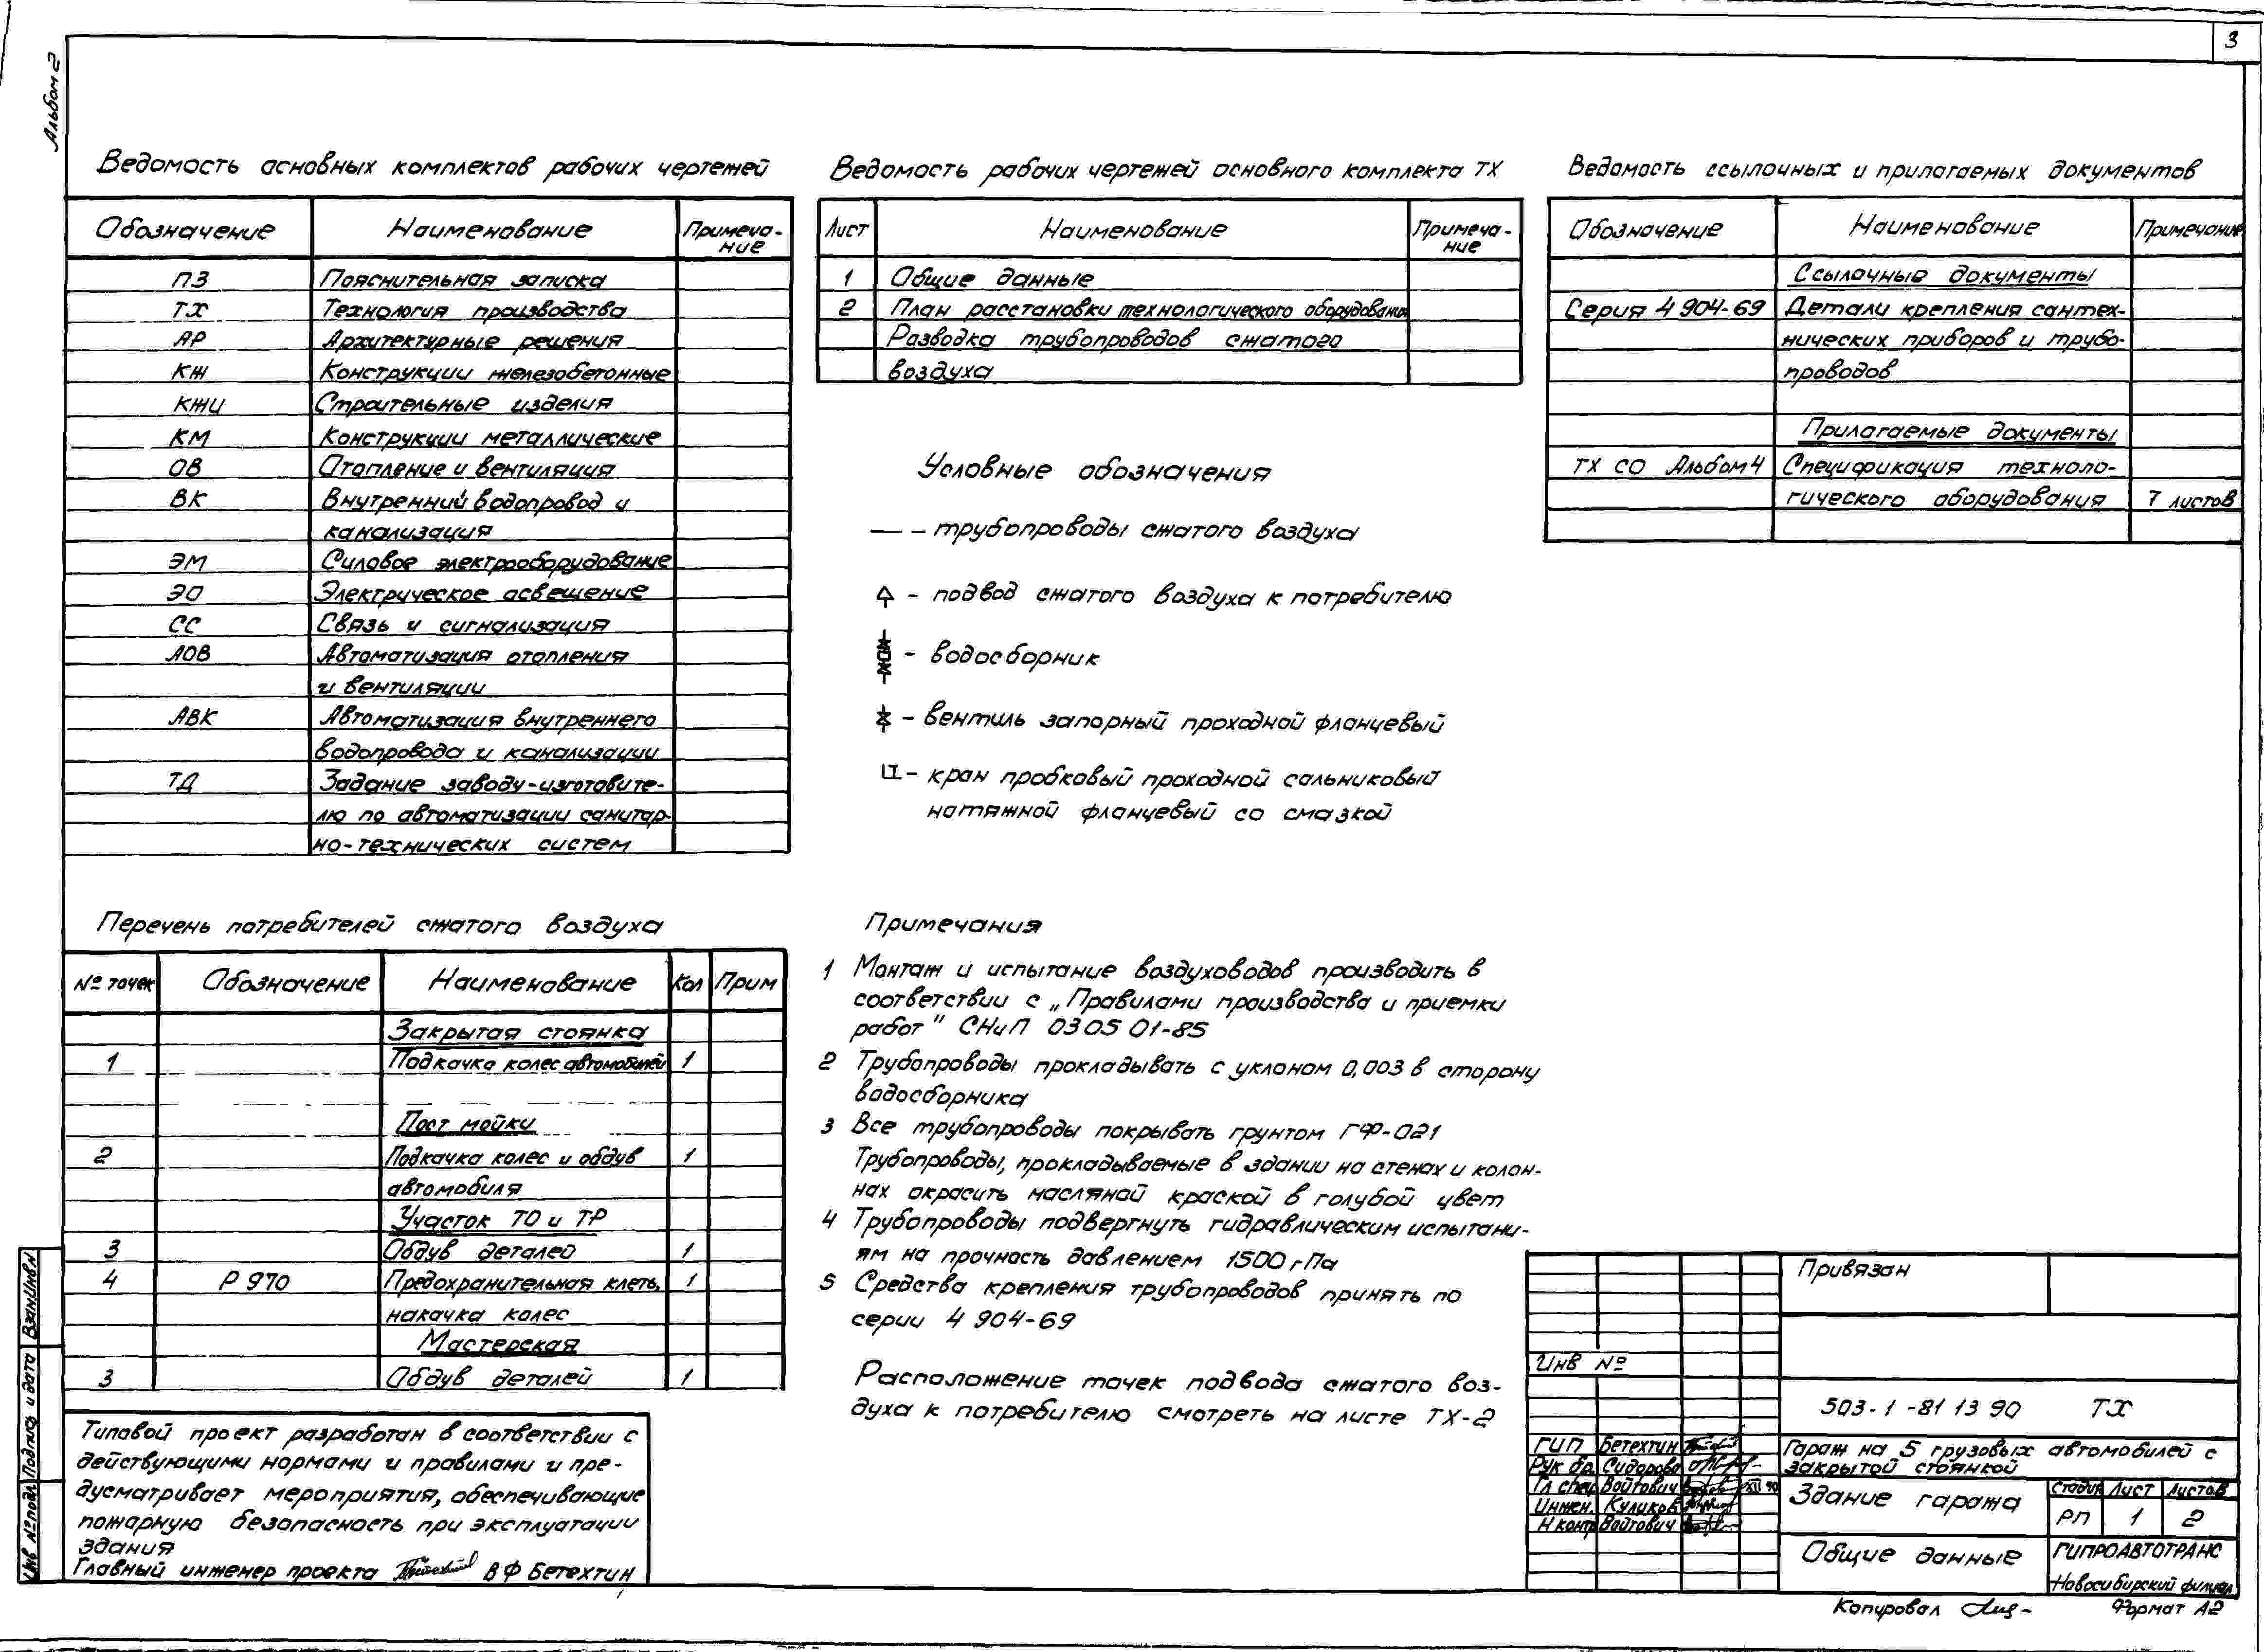 3
Альбом 2
Ведомость основных комплектов рабочих чертежей
Обозначение Наименование Примеча-
ние
ПЗ Пояснительная записка
ТХ Технология производства
АР Архитектурные решения
КЖ Конструкции железобетонные
КЖИ Строительные изделия
КМ Конструкции металлические
ОВ Отопление и вентиляция
ВК Внутренний водопровод и
канализация
ЭМ Силовое электрооборудование
ЭО Электрическое освещение
СС Связь и сигнализация
АОВ Автоматизация отопления
и вентиляции
АВК Автоматизация внутреннего
водопровода и канализации
ТД Задание заводу-изготовите-
лю по автоматизации санитар-
но-технических систем
Ведомость рабочих чертежей основного комплекта ТХ
Лист Наименование Примеча-
ние
1 Общие данные
2 План расстановки технологического оборудования
Разводка трубопроводов сжатого
воздуха
Ведомость ссылочных и прилагаемых документов
Обозначение Наименование Примечание
Ссылочные документы
Серия 4 904-69 Детали крепления сантех-
нических приборов и трубо-
проводов
Прилагаемые документы
ТХ СО Альбом 4 Спецификация техноло-
гического оборудования 7 листов
Условные обозначения
— – трубопроводы сжатого воздуха
– подвод сжатого воздуха к потребителю
– водосборник
– вентиль запорный проходной фланцевый
– кран пробковый проходной сальниковый
натяжной фланцевый со смазкой
Перечень потребителей сжатого воздуха
№ точек Обозначение Наименование Кол Прим
Закрытая стоянка
1 Подкачка колес автомобилей 1
Пост мойки
2 Подкачка колес и обдув 1
автомобиля
Участок ТО и ТР
3 Обдув деталей 1
4 Р 970 Предохранительная клеть, 1
накачка колес
Мастерская
3 Обдув деталей 1
Примечания
1 Монтаж и испытание воздуховодов производить в
соответствии с „Правилами производства и приемки
работ" СНиП 03 05 01-85
2 Трубопроводы прокладывать с уклоном 0,003 в сторону
водосборника
3 Все трубопроводы покрывать грунтом ГФ-021
Трубопроводы, прокладываемые в здании на стенах и колон-
нах окрасить масляной краской в голубой цвет
4 Трубопроводы подвергнуть гидравлическим испытани-
ям на прочность давлением 1500 гПа
5 Средства крепления трубопроводов принять по
серии 4 904-69
Расположение точек подвода сжатого воз-
духа к потребителю смотреть на листе ТХ-2
Типовой проект разработан в соответствии с
действующими нормами и правилами и пре-
дусматривает мероприятия, обеспечивающие
пожарную безопасность при эксплуатации
здания
Главный инженер проекта В Ф Бетехтин
Взам.Инв.№
Подпись и дата
Инв № подл
Привязан
Инв №
503-1-81 13 90 ТХ
Гараж на 5 грузовых автомобилей с
закрытой стоянкой
ГИП Бетехтин
Рук бр. Сидорова
Гл спец Войтович XII 90
Инжен. Куликов
Н контр Войтович
Здание гаража
Стадия Лист Листов
РП 1 2
Общие данные
ГИПРОАВТОТРАНС
Новосибирский филиал
Копировал
Формат А2